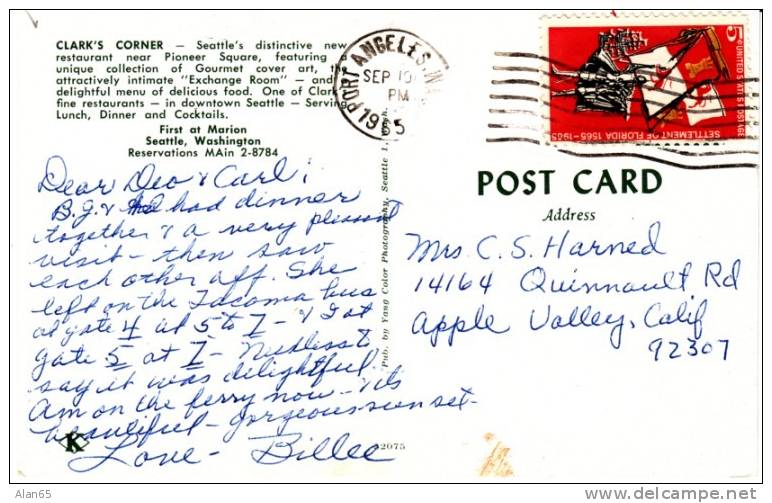 CLARK'S CORNER — Seattle's distinctive new
restaurant near Pioneer Square, featuring a
unique collection of Gourmet cover art, the
attractively intimate "Exchange Room" — and a
delightful menu of delicious food. One of Clark's
fine restaurants — in downtown Seattle — Serving
Lunch, Dinner and Cocktails.
First at Marion
Seattle, Washington
Reservations MAin 2-8784
Dear Deo & Carl:
B.J. & had dinner
together & a very pleasant
visit - then saw
each other off. She
left on the Tacoma bus
at gate 4 at 5 to 7 - & I at
gate 5 at 7 - Needless to
say it was delightful.
Am on the ferry now - its
beautiful - gorgeous sun set -
Love - Billee
K
2075
Pub. by Yang Color Photography, Seattle 1, Wash.
PORT ANGELES,
SEP 10
PM
1965
5¢ UNITED STATES POSTAGE
SETTLEMENT OF FLORIDA 1565-1965
POST CARD
Address
Mrs. C. S. Harned
14164 Quinnault Rd
Apple Valley, Calif
92307
Alan65
© delcampe.net